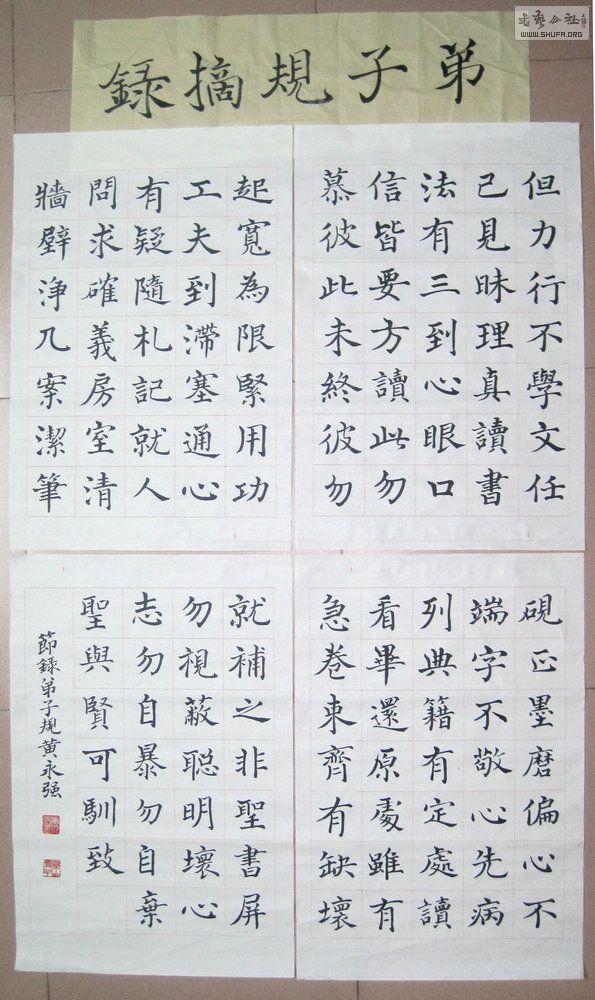 弟子規摘錄
但力行不學文任
己見昧理真讀書
法有三到心眼口
信皆要方讀此勿
慕彼此未終彼勿
起寬為限緊用功
工夫到滯塞通心
有疑隨札記就人
問求確義房室清
牆壁淨几案潔筆
硯正墨磨偏心不
端字不敬心先病
列典籍有定處讀
看畢還原處雖有
急卷束齊有缺壞
就補之非聖書屏
勿視蔽聰明壞心
志勿自暴勿自棄
聖與賢可馴致
節錄弟子規黃永强
书艺公社
WWW.SHUFA.ORG